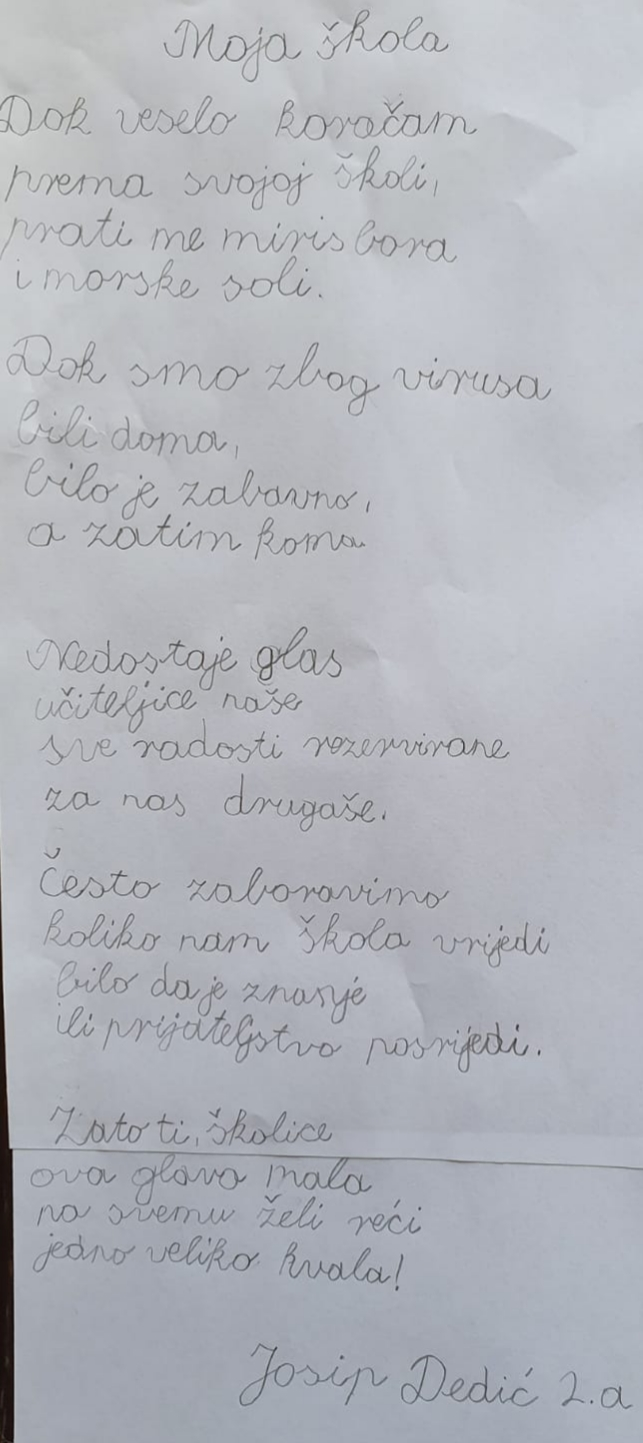 Moja škola
Dok veselo koračam
prema svojoj školi,
prati me miris bora
i morske soli.
Dok smo zbog virusa
bili doma,
bilo je zabavno,
a zatim koma
Nedostaje glas
učiteljice naše
sve radosti rezervirane
za nas drugaše.
Često zaboravimo
koliko nam škola vrijedi
bilo da je znanje
ili prijateljstvo posrijedi.
Zato ti, školice
ova glava mala
na svemu želi reći
jedno veliko hvala!
Josip Dedić 2.a